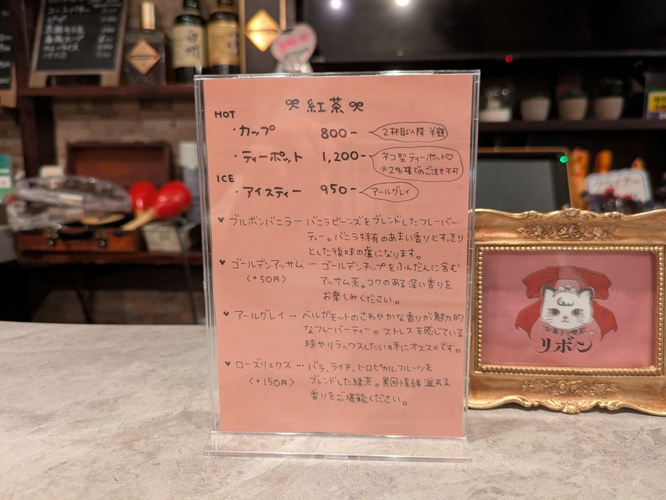 紅茶
HOT
・カップ 800- 2杯目以降 半額
・ティーポット 1,200- ネコ型ティーポット♡
※2名様でのご注文不可
ICE
・アイスティー 950- アールグレイ
♥ ブルボンバニラ … バニラビーンズをブレンドしたフレーバー
ティー。バニラ特有のあまい香りとすっきり
とした後味の虜になります。
♥ ゴールデンアッサム … ゴールデンチップをふんだんに含む
<+50円> アッサム茶。コクのある深い香りを
お楽しみください。
♥ アールグレイ … ベルガモットのさわやかな香りが魅力的
なフレーバーティー。ストレスを感じている
時やリラックスしたい時にオススメです。
♥ ローズリュクス … バラ、ライチ、トロピカルフルーツを
<+150円> ブレンドした緑茶。異国情緒溢れる
香りをご堪能ください。
リボン